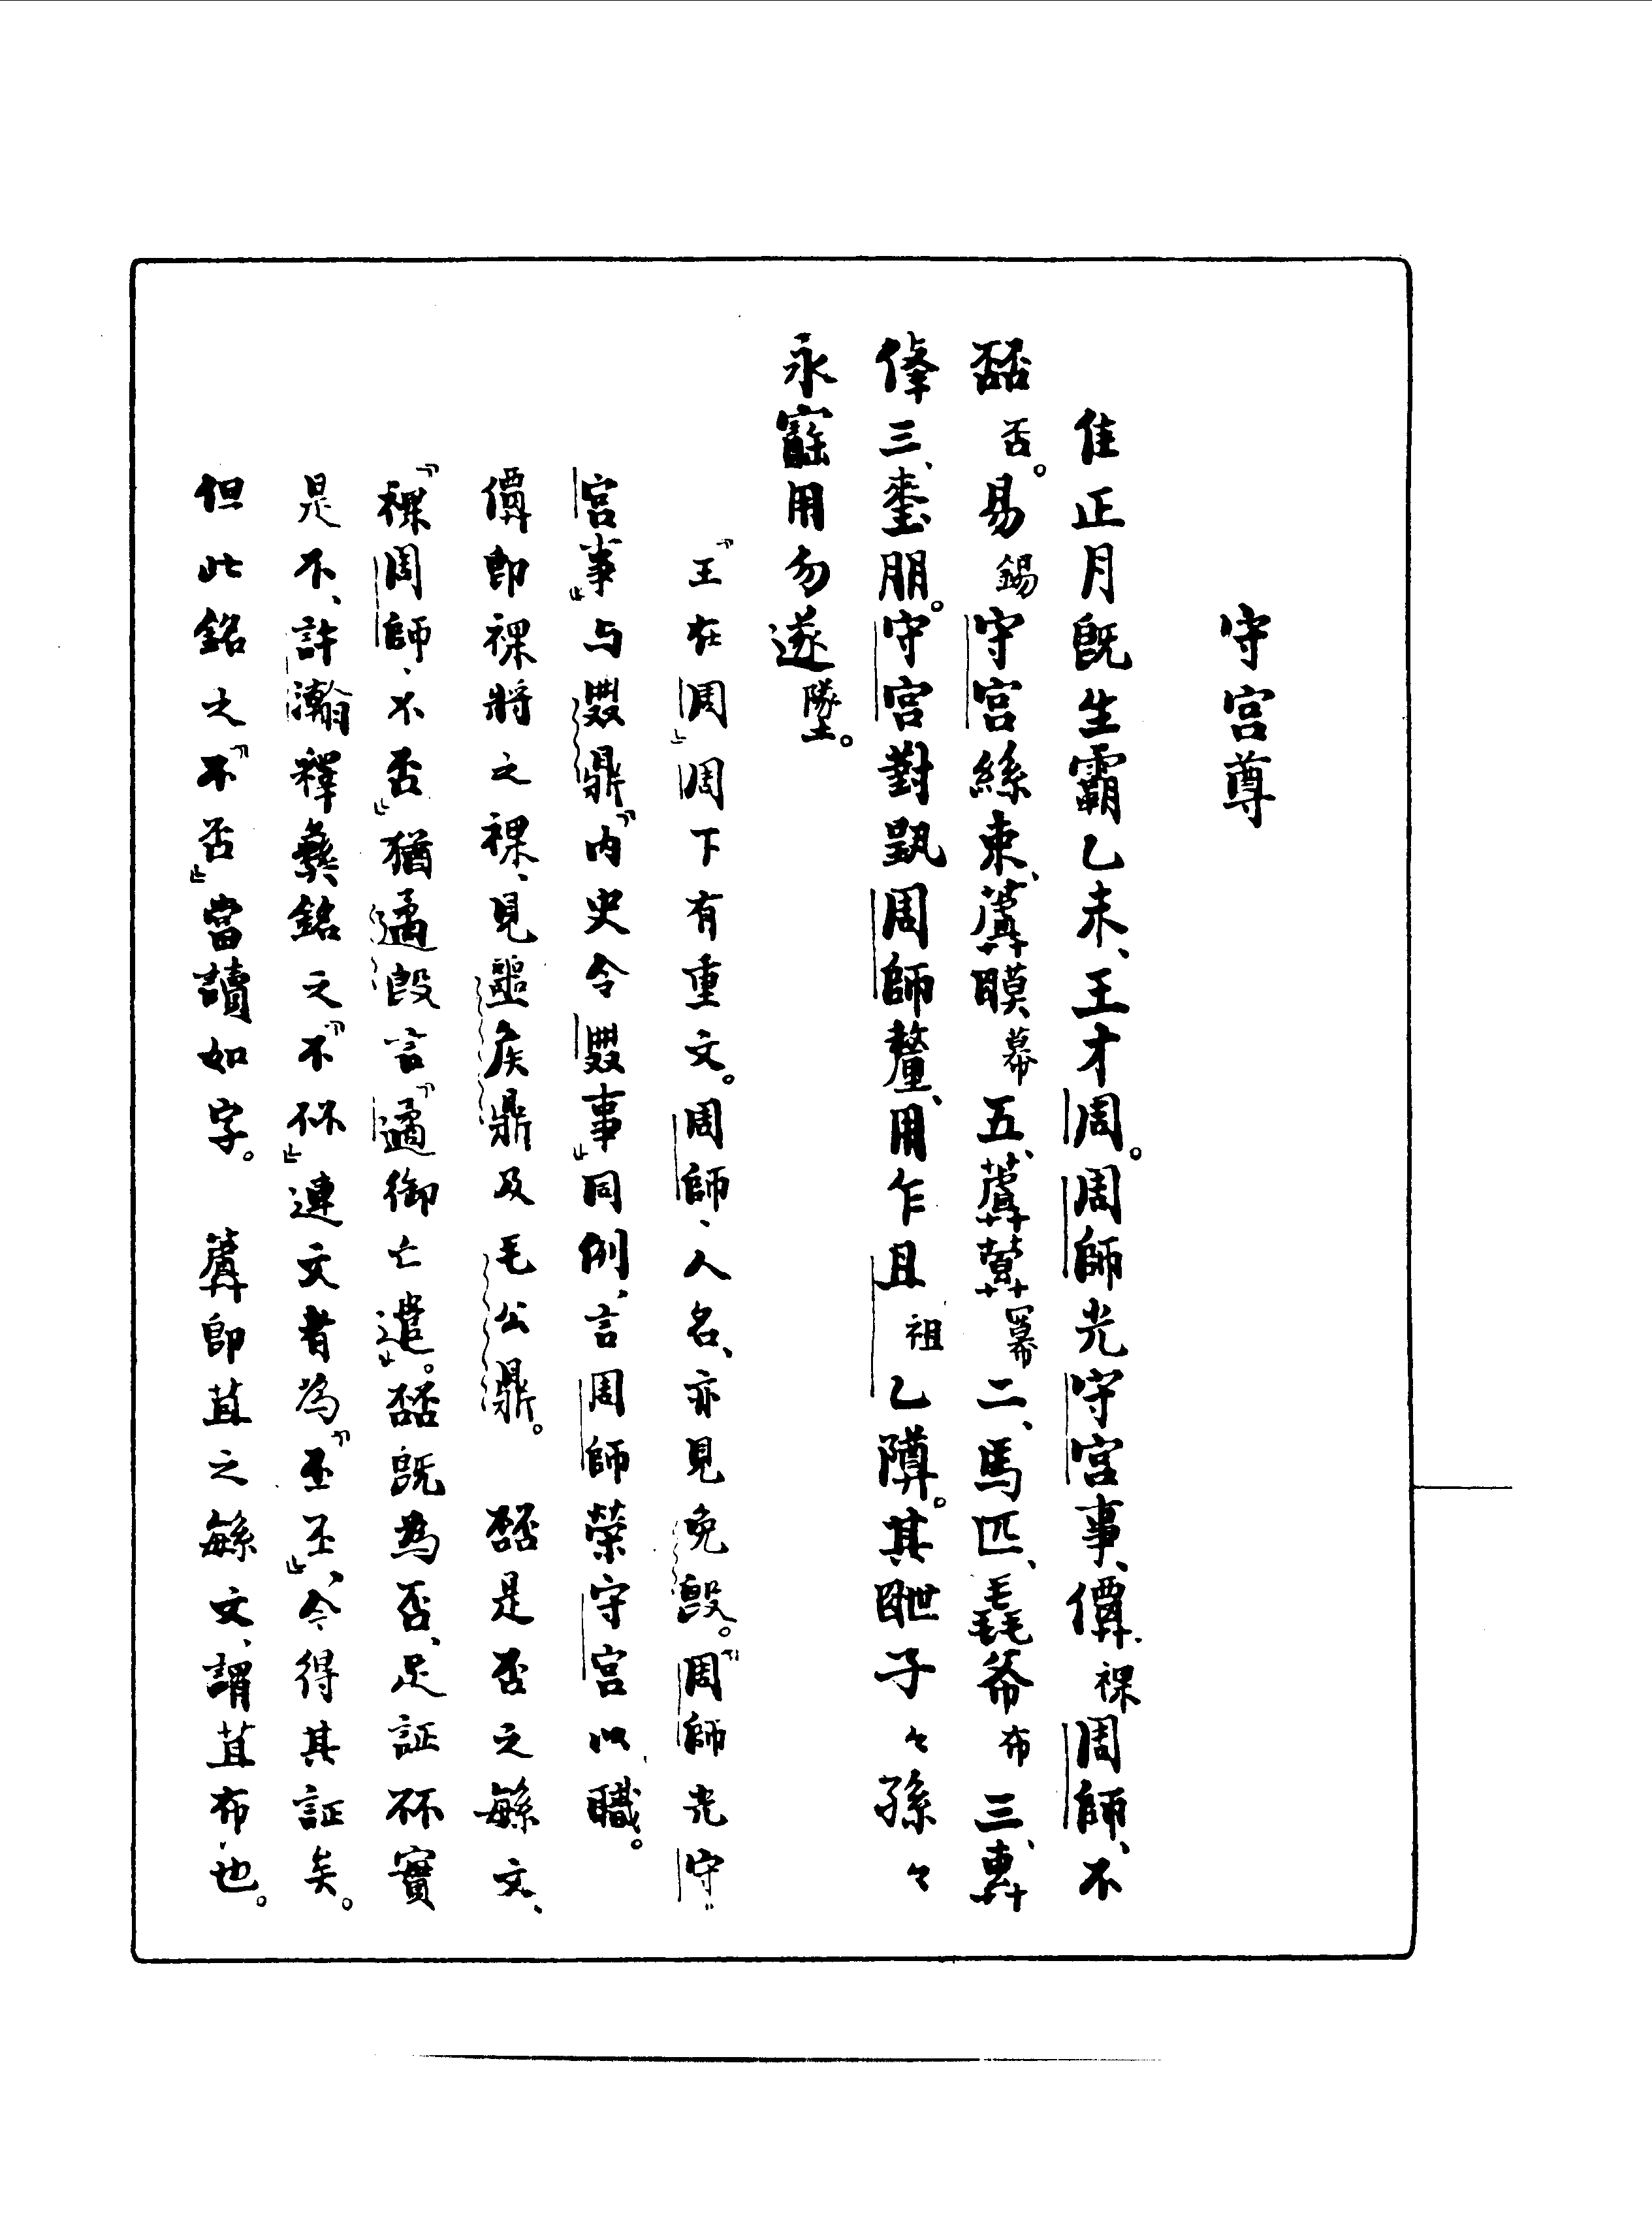 守宮尊
隹正月既生霸乙未、王才周。周師光守宮事、祼周師、不
否。易錫守宮絲束、幕五、冪二、馬匹、毳布三、
三、朋。守宮對周師釐、用乍且祖乙。其子々孫々
永用勿遂墜。
「王在周」周下有重文。周師、人名、亦見免𣪘。「周師光守
宮事」与鼎「內史令事」同例、言周師榮守宮以職。
即祼將之祼、見噩矦鼎及毛公鼎。 𠷎是否之緐文、
「祼周師、不否」猶遹𣪘言「遹御亡遣」。既為否、足証㔻實
是不、許瀚釋彝銘之「不㔻」連文者為「丕丕」、今得其証矣。
但此銘之「不否」當讀如字。 即苴之緐文、謂苴布也。